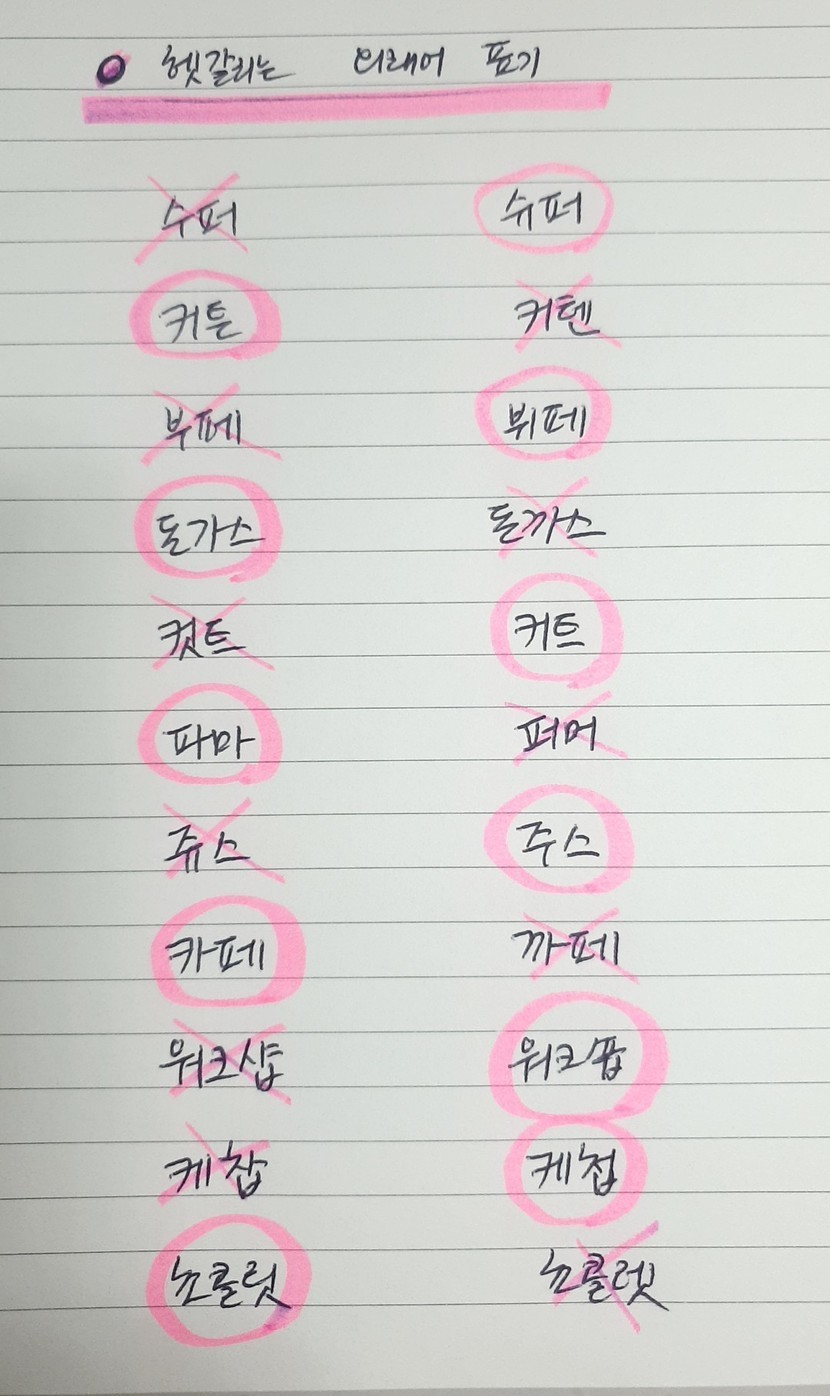 헷갈리는 외래어 표기
수퍼 슈퍼
커튼 커텐
부페 뷔페
돈가스 돈까스
컷트 커트
파마 퍼머
쥬스 주스
카페 까페
워크샵 워크숍
케찹 케첩
초콜릿 초콜렛